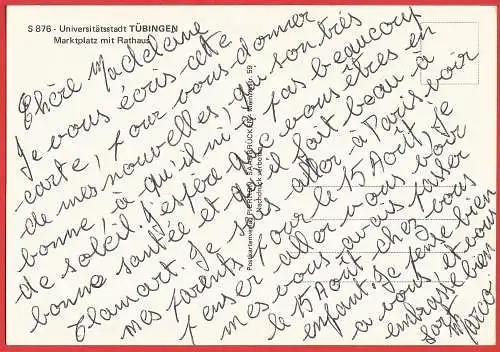 S 876 - Universitätsstadt TÜBINGEN
Marktplatz mit Rathaus
Chère Madeleine
Je vous écris cette
carte, pour vous donner
de mes nouvelles, qui son très
bonne, à qu'il n'i, a pas beaucoup
de soleil. J'espère que vous êtres en
bonne santée et qu'il fait beau à
Clamart. Je vais aller à Paris voir
mes parents pour le 15 Août, Je
penser aller vous voir
mes vous avais passer
le 15 Août chez vous
enfant. Je pense bien
a vous et vous
embrasse bien
fort Marco